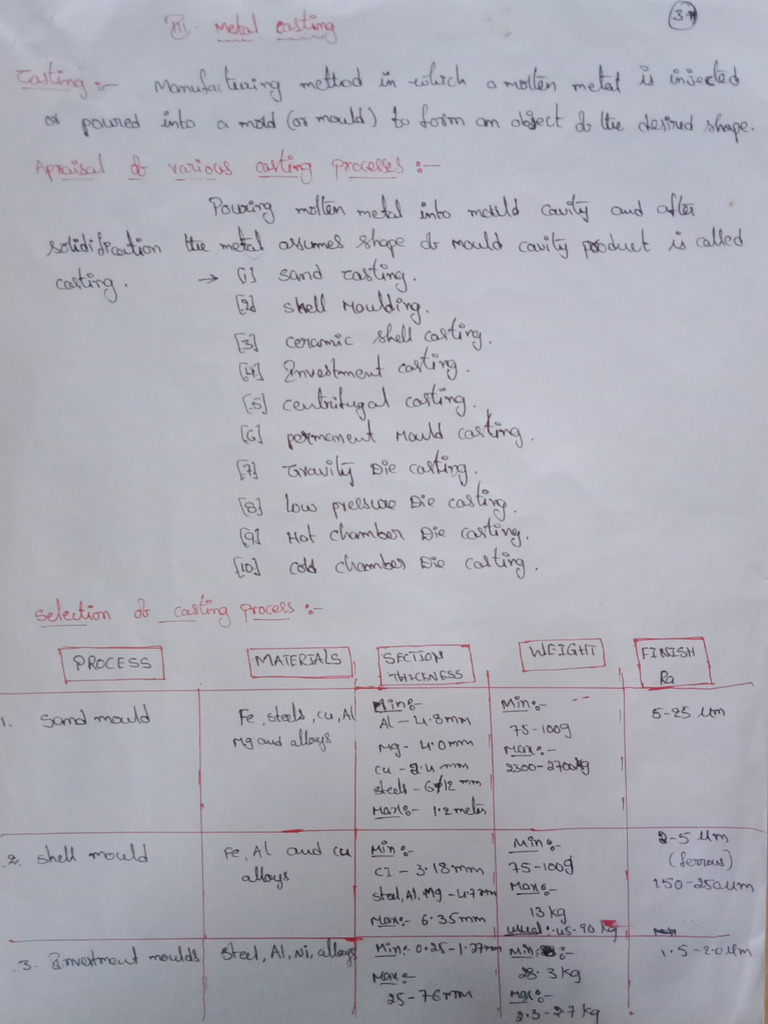 37
III. Metal casting
Casting :- Manufacturing method in which a molten metal is injected
or poured into a mold (or mould) to form an object of the desired shape.
Appraisal of various casting processes :-
Pouring molten metal into mould cavity and after
solidification the metal assumes shape of mould cavity product is called
casting. → [1] sand casting.
[2] shell Moulding.
[3] ceramic shell casting.
[4] Investment casting.
[5] centrifugal casting.
[6] permanent Mould casting.
[7] Gravity Die casting.
[8] low pressure Die casting.
[9] Hot chamber Die casting.
[10] cold chamber Die casting.
Selection of casting process :-
PROCESS MATERIALS SECTION THICKNESS WEIGHT FINISH Ra
1. Sand mould
Fe, steels, cu, Al
Mg and alloys
Min:-
Al - 4.8mm
Mg - 4.0mm
cu - 2.4 mm
steels - 6-12 mm
Max:- 1.2 meter
Min:-
75-100g
Max:-
2300-2700kg
5-25 µm
2. shell mould
Fe, Al and cu
alloys
Min:-
CI - 3.18mm
steel, Al, Mg - 4.7mm
Max:- 6.35mm
Min:-
75-100g
Max:-
13 kg
usual:- 45-90 kg
2-5 µm
(ferrous)
150-250µm
3. Investment moulds
Steel, Al, Ni, alloys
Min:- 0.25-1.27mm
Max:-
25-76mm
Min:-
28.3 kg
Max:-
2.3-2.7 kg
1.5-2.0µm